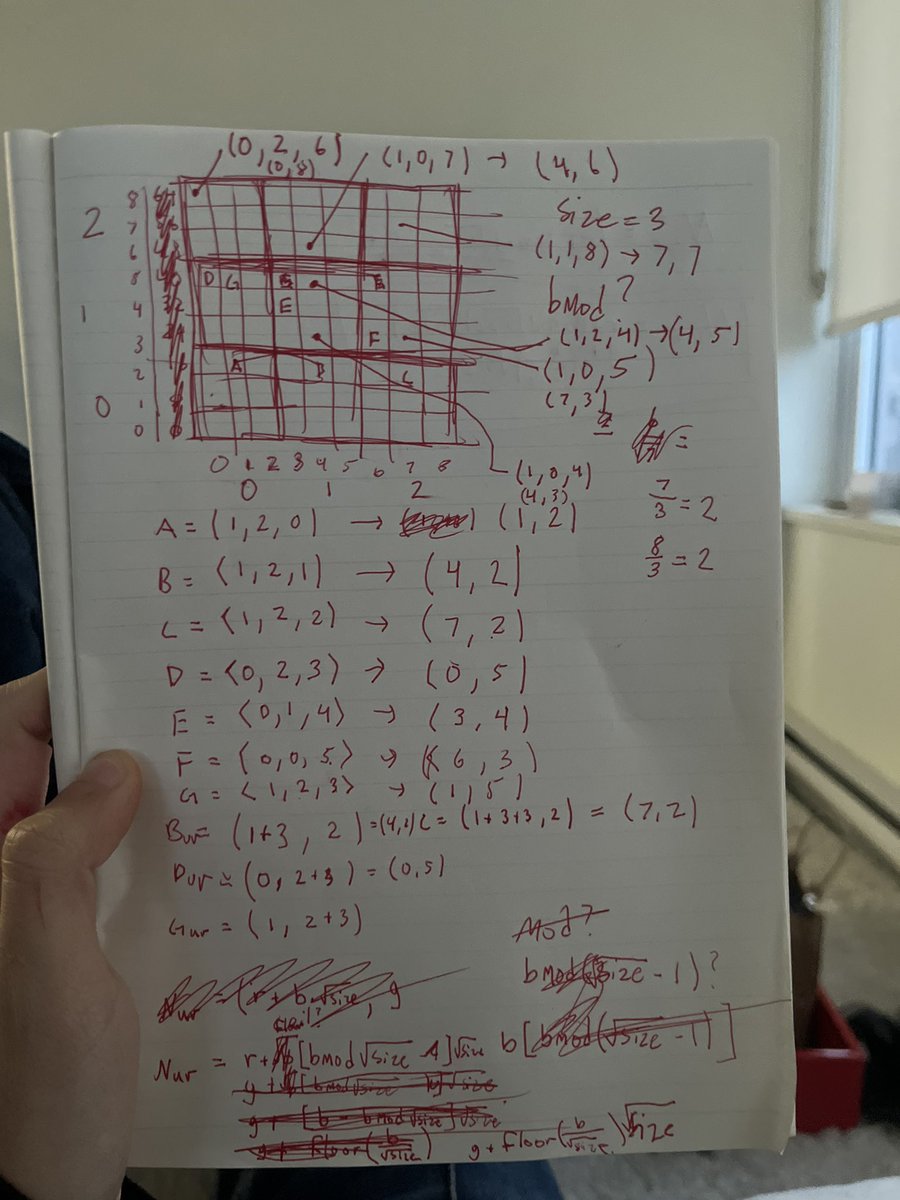 (0, 2, 6)
(0,8)
(1,0,7) → (4,6)
Size = 3
(1,1,8) → 7, 7
bmod?
(1,2,4)→(4,5)
(1,0,5)
(7,3)
2
1
0
8
7
6
5
4
3
2
1
0
D G E
E
F
A B C
0 1 2 3 4 5 6 7 8
0 1 2
(1,0,4)
(4,3)
7/3 = 2
8/3 = 2
A = (1, 2, 0) → (1, 2)
B = (1, 2, 1) → (4, 2)
C = (1, 2, 2) → (7, 2)
D = (0, 2, 3) → (0, 5)
E = (0, 1, 4) → (3, 4)
F = (0, 0, 5) → (6, 3)
G = (1, 2, 3) → (1, 5)
Buv = (1+3, 2) = C = (1+3+3, 2) = (7, 2)
Duv = (0, 2+3) = (0,5)
Guv = (1, 2+3)
Mod?
bmod(√size - 1)?
Nuv = (r + b √size, g
Nuv = r+ [bmod√size]√size b[bmod(√size - 1)]
g + [b - bmod√size]√size
g + floor(b/√size) g + floor(b/√size)√size